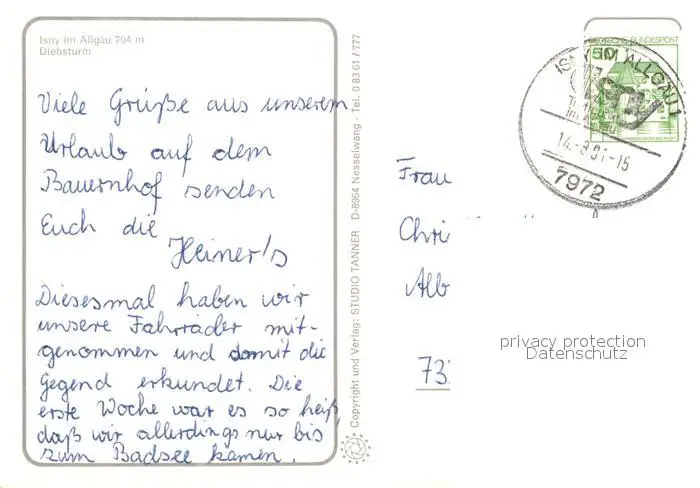 Isny im Allgäu 704 m
Diebsturm
Viele Grüße aus unserem
Urlaub auf dem
Bauernhof senden
Euch die
Heiner's
Diesesmal haben wir
unsere Fahrräder mit-
genommen und damit die
Gegend erkundet. Die
erste Woche war es so heiß,
daß wir allerdings nur bis
zum Badsee kamen.
Copyright und Verlag: STUDIO TANNER D-8964 Nesselwang - Tel. 0 83 61 / 777
DEUTSCHE BUNDESPOST
50
ISNY IM ALLGÄU 1
7972
Frau
Chri
Alb
73
privacy protection
Datenschutz